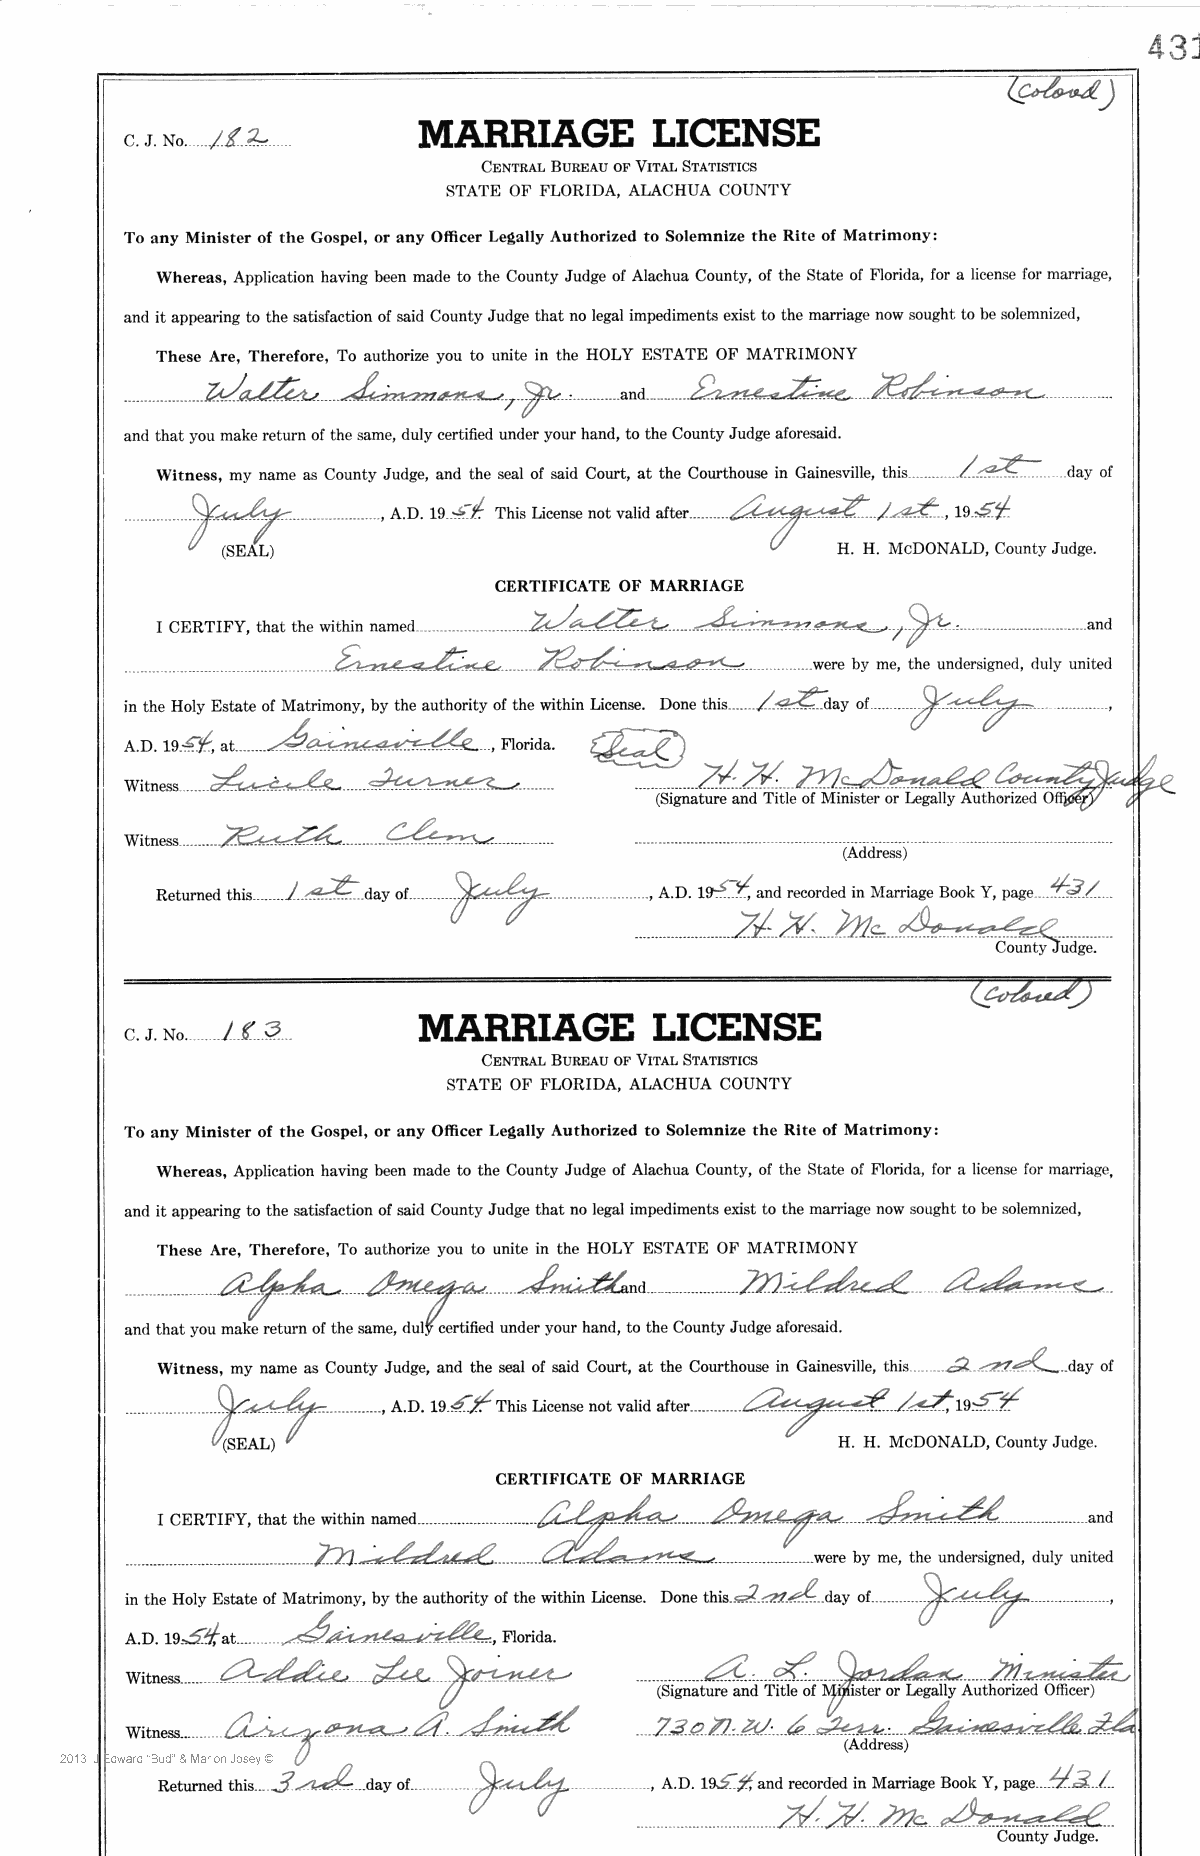 431
(Colored)
C. J. No. 182
MARRIAGE LICENSE
CENTRAL BUREAU OF VITAL STATISTICS
STATE OF FLORIDA, ALACHUA COUNTY
To any Minister of the Gospel, or any Officer Legally Authorized to Solemnize the Rite of Matrimony:
Whereas, Application having been made to the County Judge of Alachua County, of the State of Florida, for a license for marriage,
and it appearing to the satisfaction of said County Judge that no legal impediments exist to the marriage now sought to be solemnized,
These Are, Therefore, To authorize you to unite in the HOLY ESTATE OF MATRIMONY
Walter Simmons, Jr. and Ernestine Robinson
and that you make return of the same, duly certified under your hand, to the County Judge aforesaid.
Witness, my name as County Judge, and the seal of said Court, at the Courthouse in Gainesville, this 1st day of
July, A.D. 1954. This License not valid after August 1st, 1954
(SEAL) H. H. McDONALD, County Judge.
CERTIFICATE OF MARRIAGE
I CERTIFY, that the within named Walter Simmons, Jr. and
Ernestine Robinson were by me, the undersigned, duly united
in the Holy Estate of Matrimony, by the authority of the within License. Done this 1st day of July,
A.D. 1954, at Gainesville, Florida. Seal
Witness Lucile Turner H. H. McDonald County Judge
(Signature and Title of Minister or Legally Authorized Officer)
Witness Ruth Clem
(Address)
Returned this 1st day of July, A.D. 1954, and recorded in Marriage Book Y, page 431
H. H. McDonald
County Judge.
(Colored)
C. J. No. 183
MARRIAGE LICENSE
CENTRAL BUREAU OF VITAL STATISTICS
STATE OF FLORIDA, ALACHUA COUNTY
To any Minister of the Gospel, or any Officer Legally Authorized to Solemnize the Rite of Matrimony:
Whereas, Application having been made to the County Judge of Alachua County, of the State of Florida, for a license for marriage,
and it appearing to the satisfaction of said County Judge that no legal impediments exist to the marriage now sought to be solemnized,
These Are, Therefore, To authorize you to unite in the HOLY ESTATE OF MATRIMONY
Alpha Omega Smith and Mildred Adams
and that you make return of the same, duly certified under your hand, to the County Judge aforesaid.
Witness, my name as County Judge, and the seal of said Court, at the Courthouse in Gainesville, this 2nd day of
July, A.D. 1954. This License not valid after August 1st, 1954
(SEAL) H. H. McDONALD, County Judge.
CERTIFICATE OF MARRIAGE
I CERTIFY, that the within named Alpha Omega Smith and
Mildred Adams were by me, the undersigned, duly united
in the Holy Estate of Matrimony, by the authority of the within License. Done this 2nd day of July,
A.D. 1954, at Gainesville, Florida.
Witness Addie Lee Joiner A. L. Jordan Minister
(Signature and Title of Minister or Legally Authorized Officer)
Witness Arizona A. Smith 730 N. W. 6 Terr. Gainesville, Fla
(Address)
2013 J Edward "Bud" & Marion Josey ©
Returned this 3rd day of July, A.D. 1954, and recorded in Marriage Book Y, page 431
H. H. McDonald
County Judge.